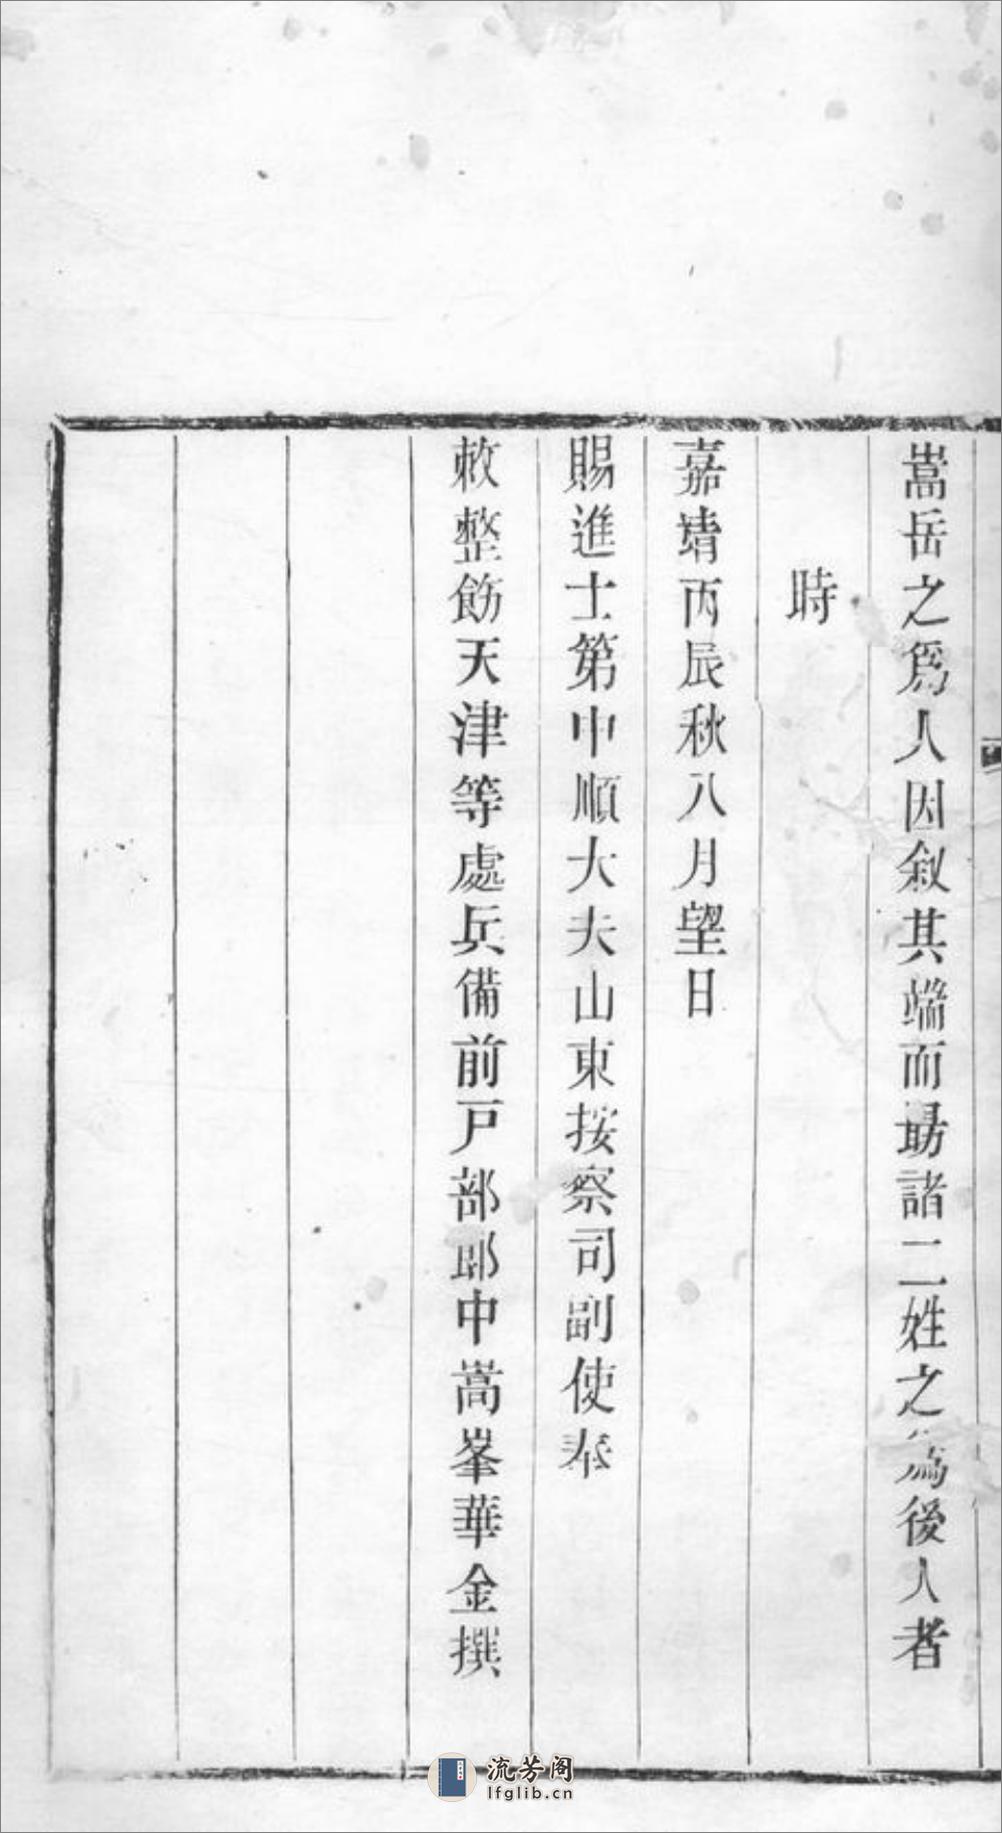 嵩岳之爲人因敘其端而勗諸二姓之爲後人者
時
嘉靖丙辰秋八月望日
賜進士第中順大夫山東按察司副使奉
敕整飭天津等處兵備前戸部郎中嵩峯華金撰
流芳阁
lfglib.cn